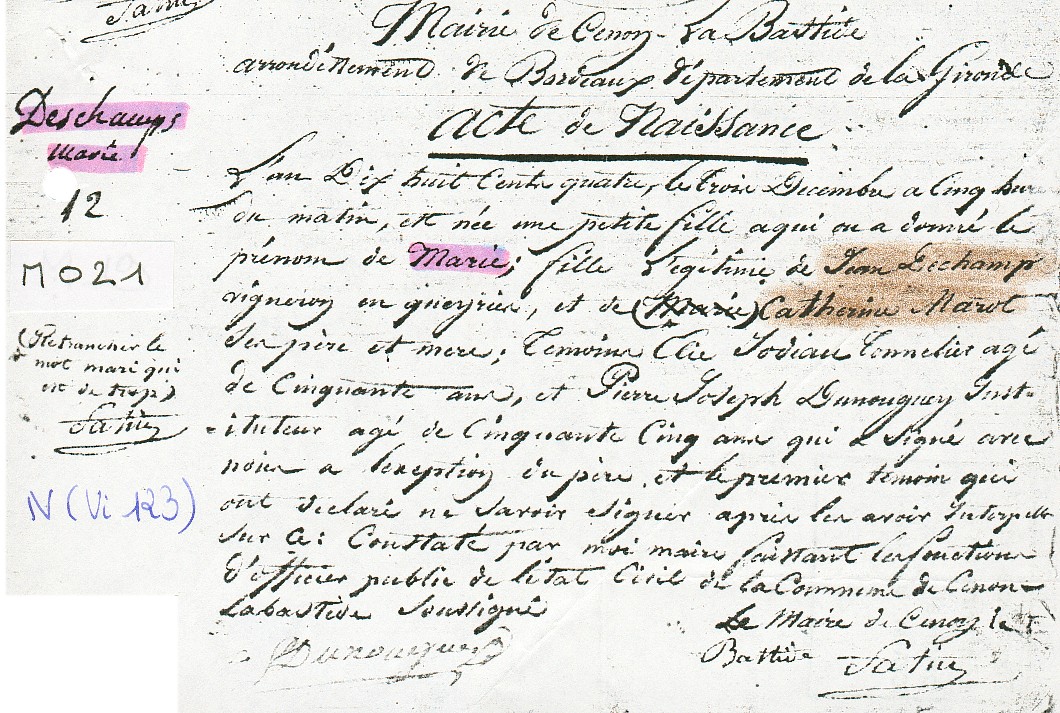 Mairie de Cenon-La Bastide
arrondissement de Bordeaux département de la Gironde
acte de Naissance
Deschamps
Marie
12
M021
(Retrancher le
mot mari qui
est de trop)
N (Vi 123)
L'an Dix huit Cents quatre, le trois Decembre a Cinq heure
du matin, est née une petite fille a qui on a donné le
prénom de Marie; fille Légitime de Jean Dechamp
vigneron en queyries, et de (Marie) Catherine Marot
Ses père et mere; Temoins Elie Jodeau Tonnelier agé
de Cinquante ans, et Pierre Joseph Dunouguey Inst-
-ituteur agé de Cinquante Cinq ans qui a signé avec
nous a l'exeption du père, et le premier temoin qui
ont declaré ne savoir signer après les avoir Interpellé
sur ce: Constaté par moi maire faissant les fonctions
d'officier public de l'état Civil de la Commune de Cenon-
Labastide Soussigné
Dunouguey
Le Maire de Cenon la
Bastide